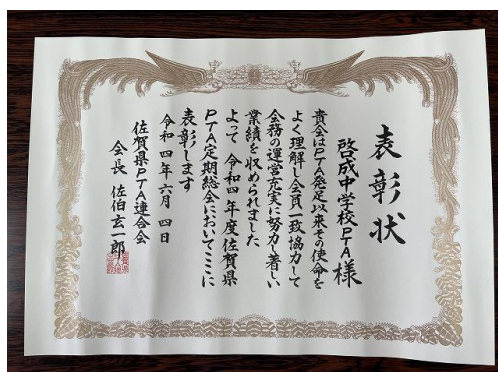 表彰状
啓成中学校PTA様
貴会はPTA発足以来その使命を
よく理解し会員一致協力して
会務の運営充実に努力し著しい
業績を収められました
よって 令和四年度佐賀県
PTA定期総会においてここに
表彰します
令和四年六月四日
佐賀県PTA連合会
会長 佐伯玄一郎